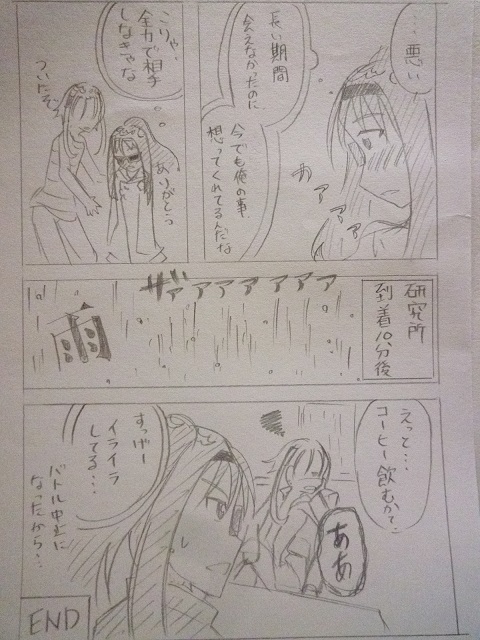 …悪い
長い期間
会えなかったのに
今でも俺の事、
想ってくれてるんだな
カァァァァ
こりゃ、
全力で相手
しなきゃな
ありがとう
ついたぞ
研究所
到着10分後
ザァァァァァァァ
雨
えっと…
コーヒー飲むか?
ああ
すっげー
イライラ
してる…
バトル中止に
なったから…
END